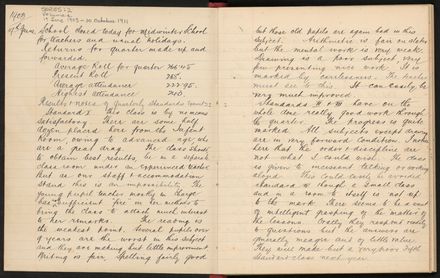 5202S-2
June 1903 - 20 October 1911
1903
June
School closed today for Midwinter School
for teachers and usual holidays.
Returns for quarter made up and
forwarded.
Average Roll for quarter 266.45
Present Roll 268.
Average attendance
Highest attendance
Results & notes of Quarterly
Standard I This class is by no means
satisfactory. There are some forty
placed here from the Infant
Room, owing to advanced age, who
are a great drag. The class ought
to obtain best results, be in a separate
class room under an experienced teacher
But as our staff & accommodation
stand this is an impossibility. The
young pupil teacher mostly in charge
has sufficient "fire" in her methods to
bring the class to attach much interest
to her remarks. The reading is
the weakest point. Several pupils over
years are the worst in the school
and they are making but little improvement
Writing is fair, Spelling fairly good
but those old pupils are again bad in this
subject. Arithmetic is fair on slates
but the mental work is very weak.
Drawing is a poor subject, very
few presenting nice work. It is
marked by carelessness. The teacher
must see to this. It can easily be
very much improved.
Standards II & III have on the
whole done really good work through
the quarter. The progress is quite
marked. All subjects except drawing
are in very forward condition. In
here that the order & discipline are
not what I could wish. The class
is given to incessant talking or working
aloud. This could easily be avoided
Standard IV though a small class
and in a room to itself is not up
to the mark. There seems to be a want
of intelligent grasping of the matter of
the lessons. Orally they respond readily
to questions but the answers are
generally meagre and of little value.
They will make but a very poor Fifth
Standard class next year.